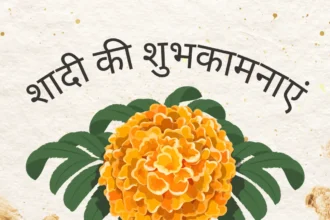 शादी की शुभकामनाएं